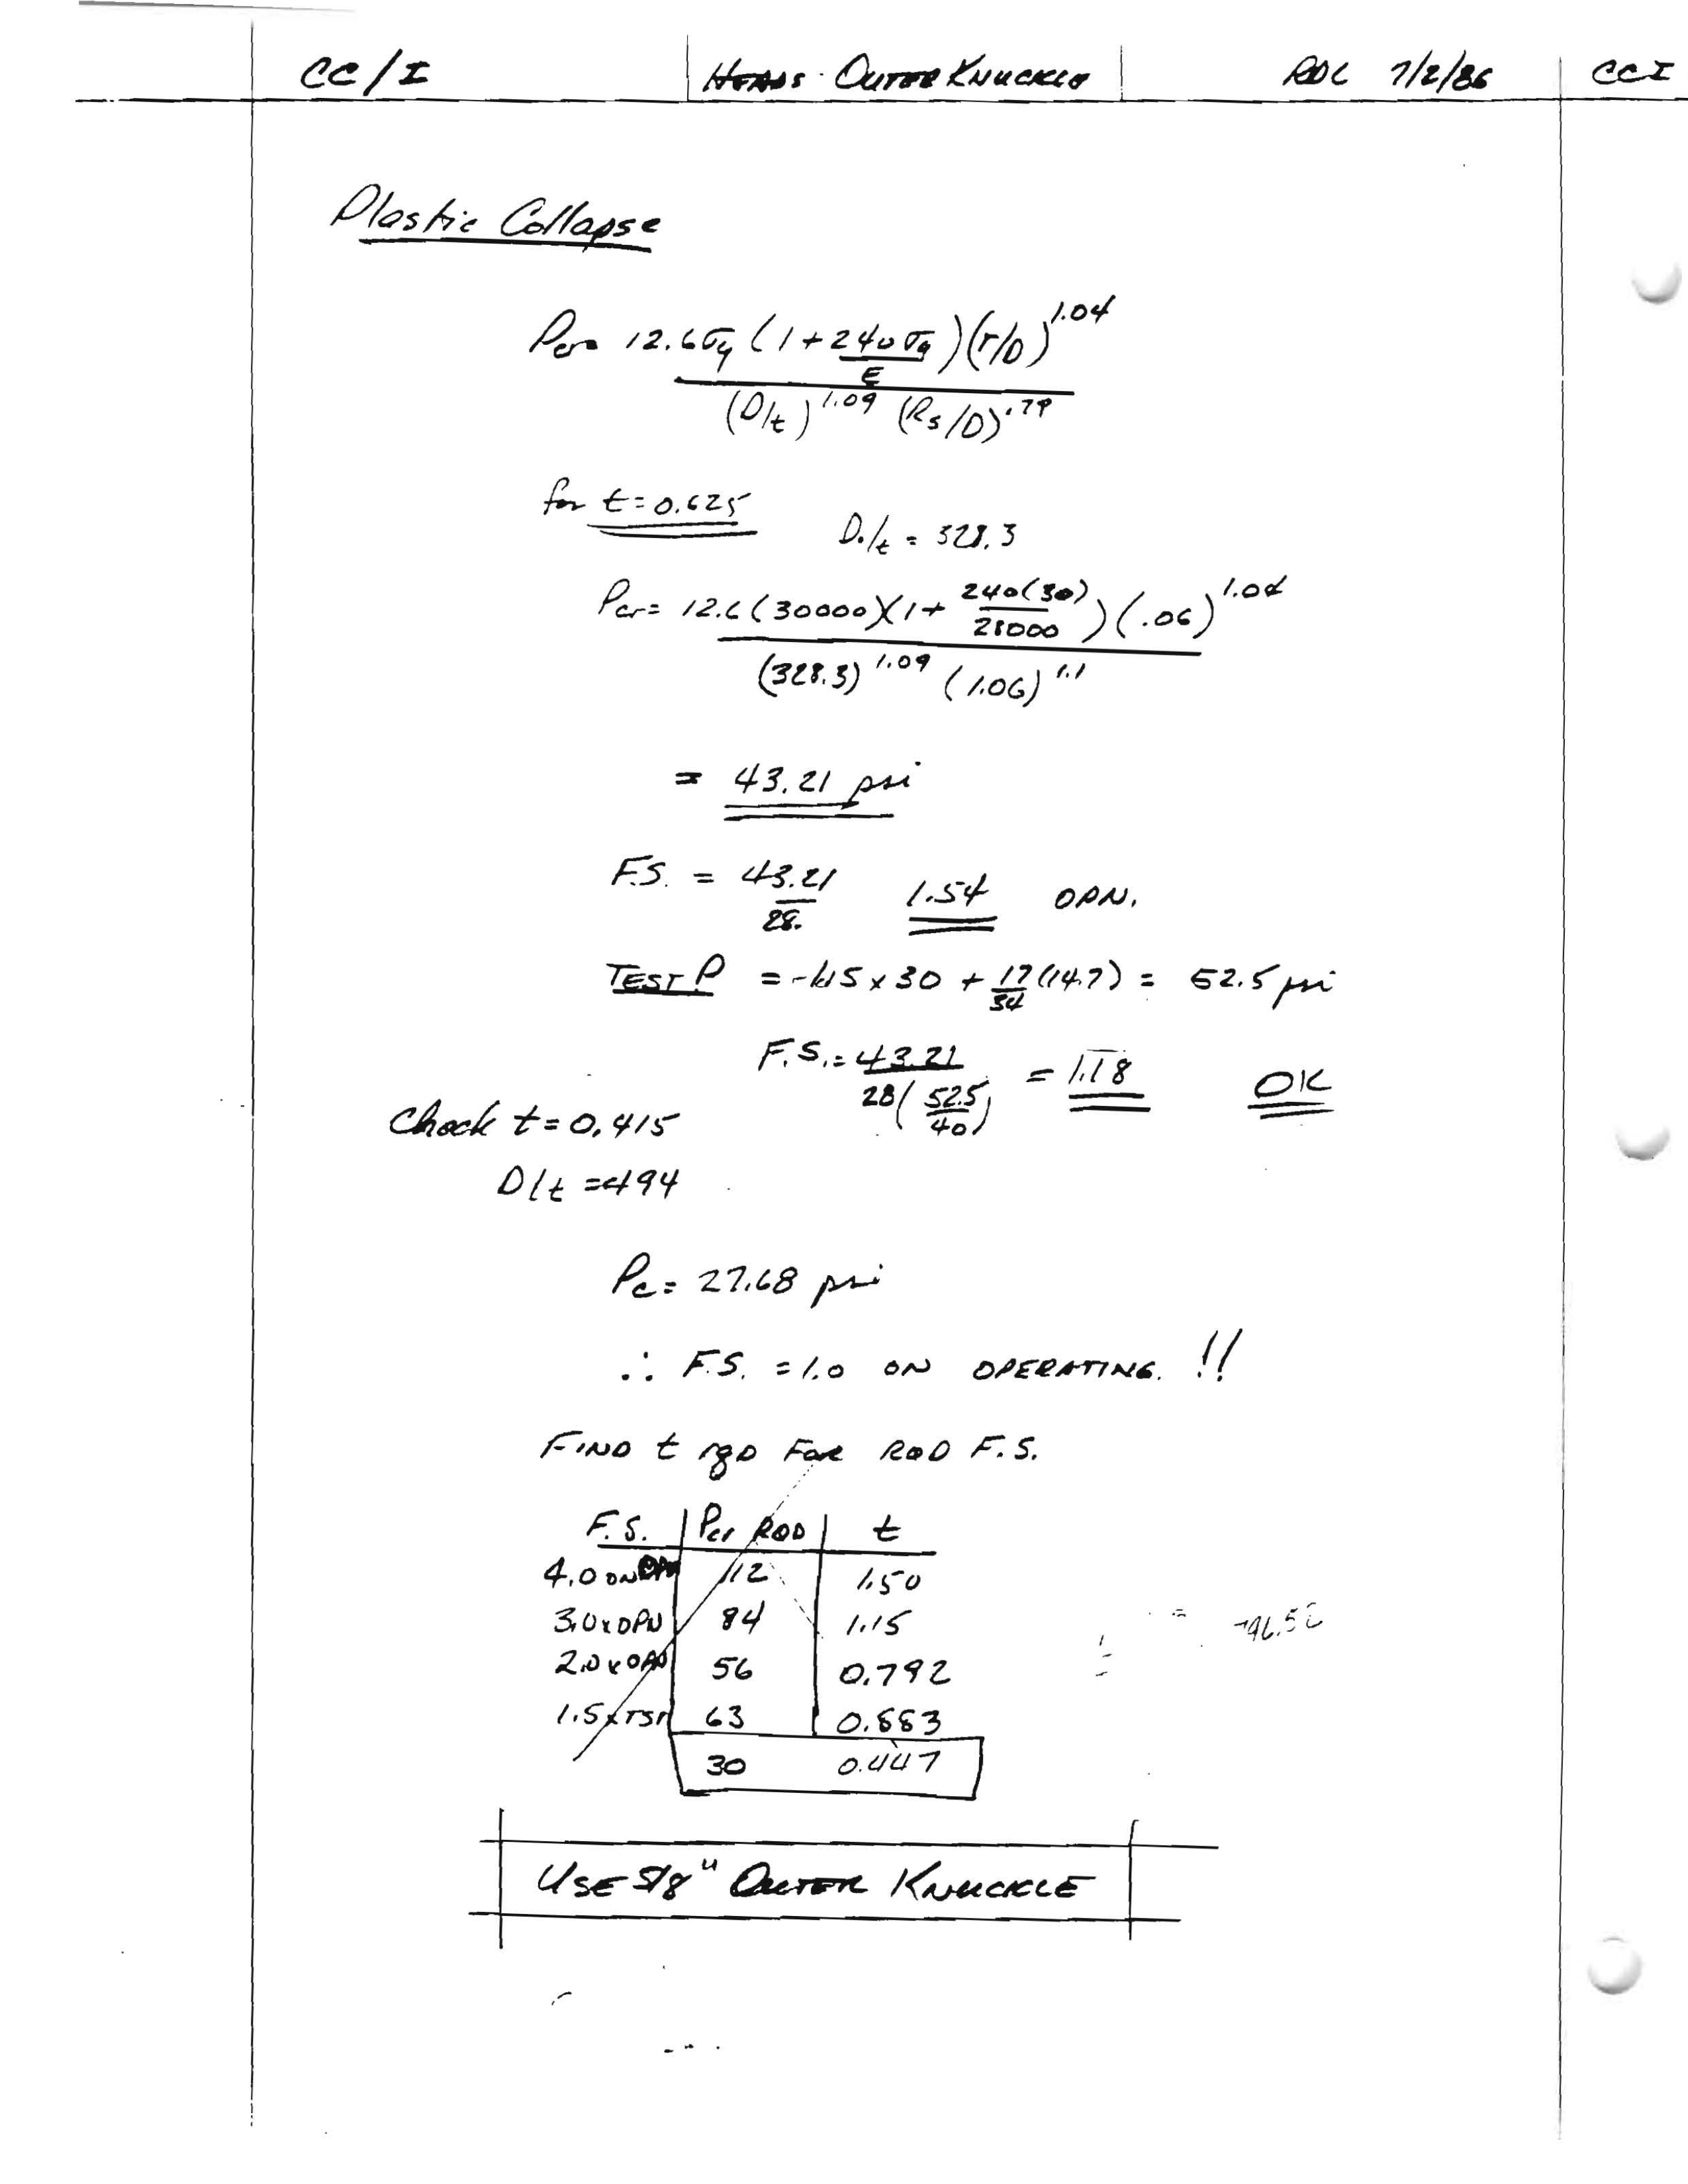 CC/I HEADS: OUTER KNUCKLE RDC 7/2/86 CCI
Plastic Collapse
Pcr = 12.6σy (1 + 240σy/E) (r/D)^1.04
(D/t)^1.09 (Rs/D)^.79
for t = 0.625 D./t = 328.3
Pcr = 12.6 (30000)(1 + 240(30)/28000) (.06)^1.04
(328.3)^1.09 (1.06)^1.1
= 43.21 psi
F.S. = 43.21/28. 1.54 OPN.
TEST P = 1.15 x 30 + 17/34 (14.7) = 52.5 psi
F.S. = 43.21/28(52.5/40) = 1.18 OK
Check t = 0.415
D/t = 494
Pc = 27.68 psi
∴ F.S. = 1.0 ON OPERATING. !!
FIND t rqD FOR RQD F.S.
F.S. Pcr RQD t
4.0 ON OPN 112 1.50
3.0 x OPN 84 1.15
2.0 x OPN 56 0.792
1.5 x TST 63 0.883
30 0.447
USE 5/8" OUTER KNUCKLE